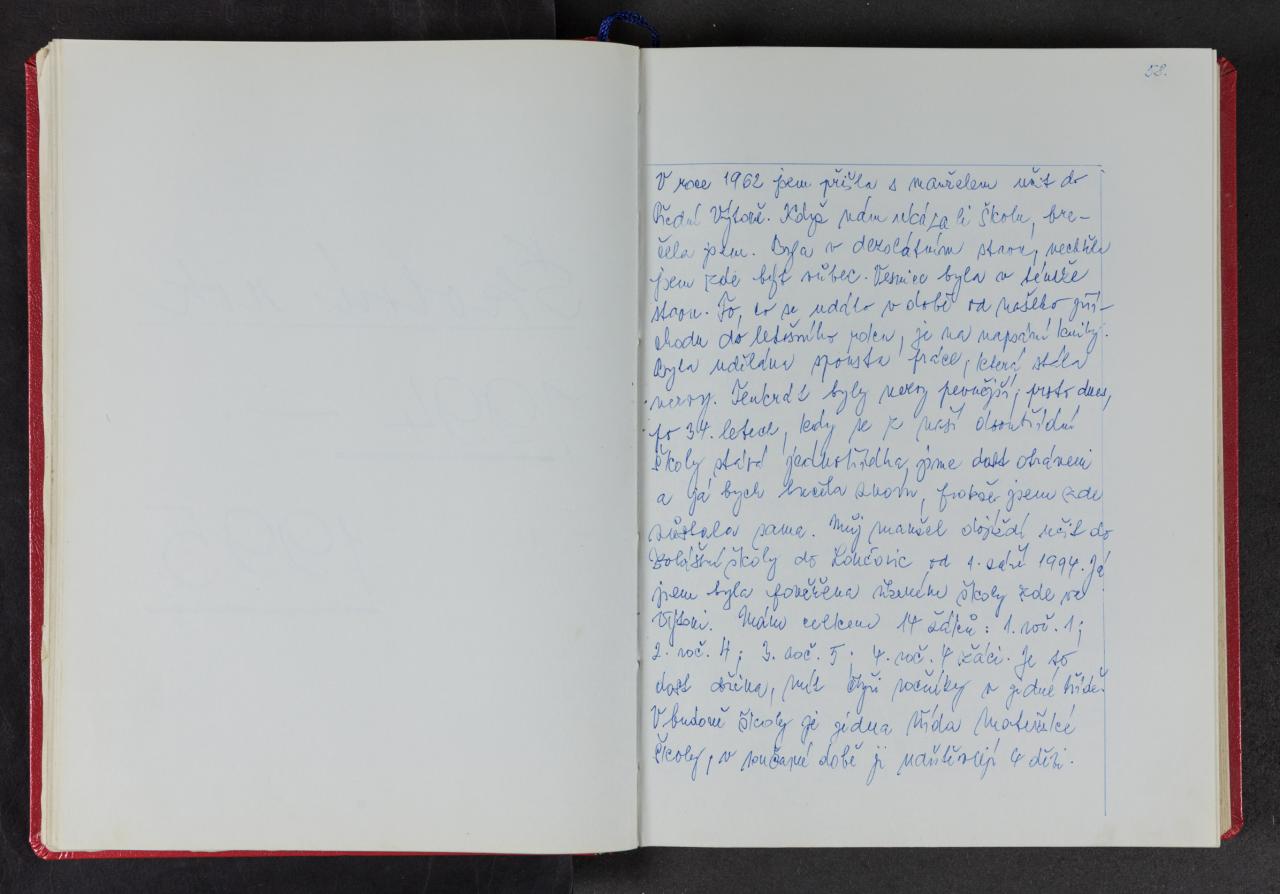 58.
V roce 1962 jsem přišla s manželem učit do
Přední Výtoně. Když nám ukázali školu, bre-
čela jsem. Byla v dezolátním stavu, nechtěla
jsem zde být vůbec. Vesnice byla v témže
stavu. To, co se událo v době od našeho pří-
chodu do letošního roku, je na napsání knihy.
Byla udělána spousta práce, která stála
nervy. Tenkrát byly nervy pevnější, proto dnes,
po 34. letech, kdy se z naší dvoutřídní
školy stává jednotřídka, jsme dost otráveni
a já bych brečela znovu, protože jsem zde
zůstala sama. Můj manžel dojíždí učit do
zvláštní školy do Loučovic od 1. září 1994. Já
jsem byla pověřena řízením školy zde ve
Výtoni. Mám celkem 14 žáků: 1. roč. 1;
2. roč. 4; 3. roč. 5; 4. roč. 4 žáci. Je to
dost dřina, mít čtyři ročníky v jedné třídě.
V budově školy je jedna třída Mateřské
školy, v současné době ji navštěvují 4 děti.